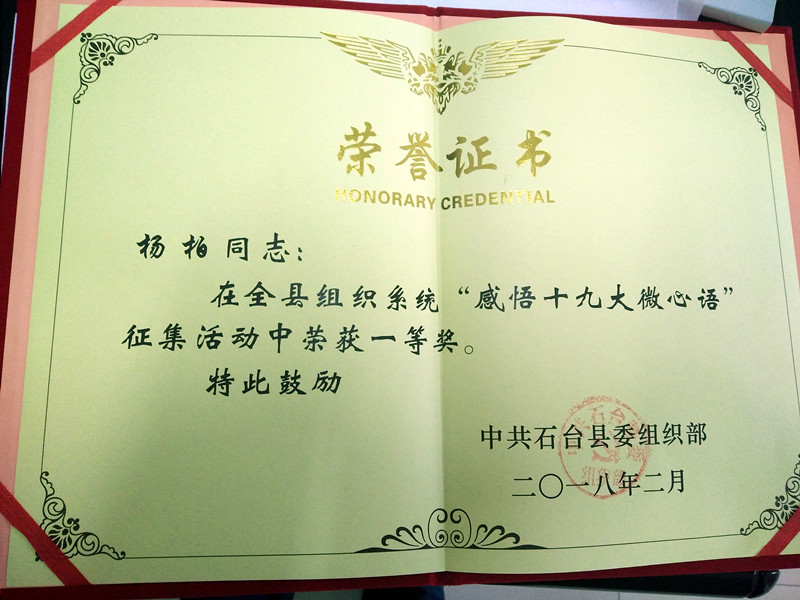 荣誉证书
HONORARY CREDENTIAL
杨柏同志：
在全县组织系统“感悟十九大微心语”
征集活动中荣获一等奖。
特此鼓励
中共石台县委组织部
二〇一八年二月